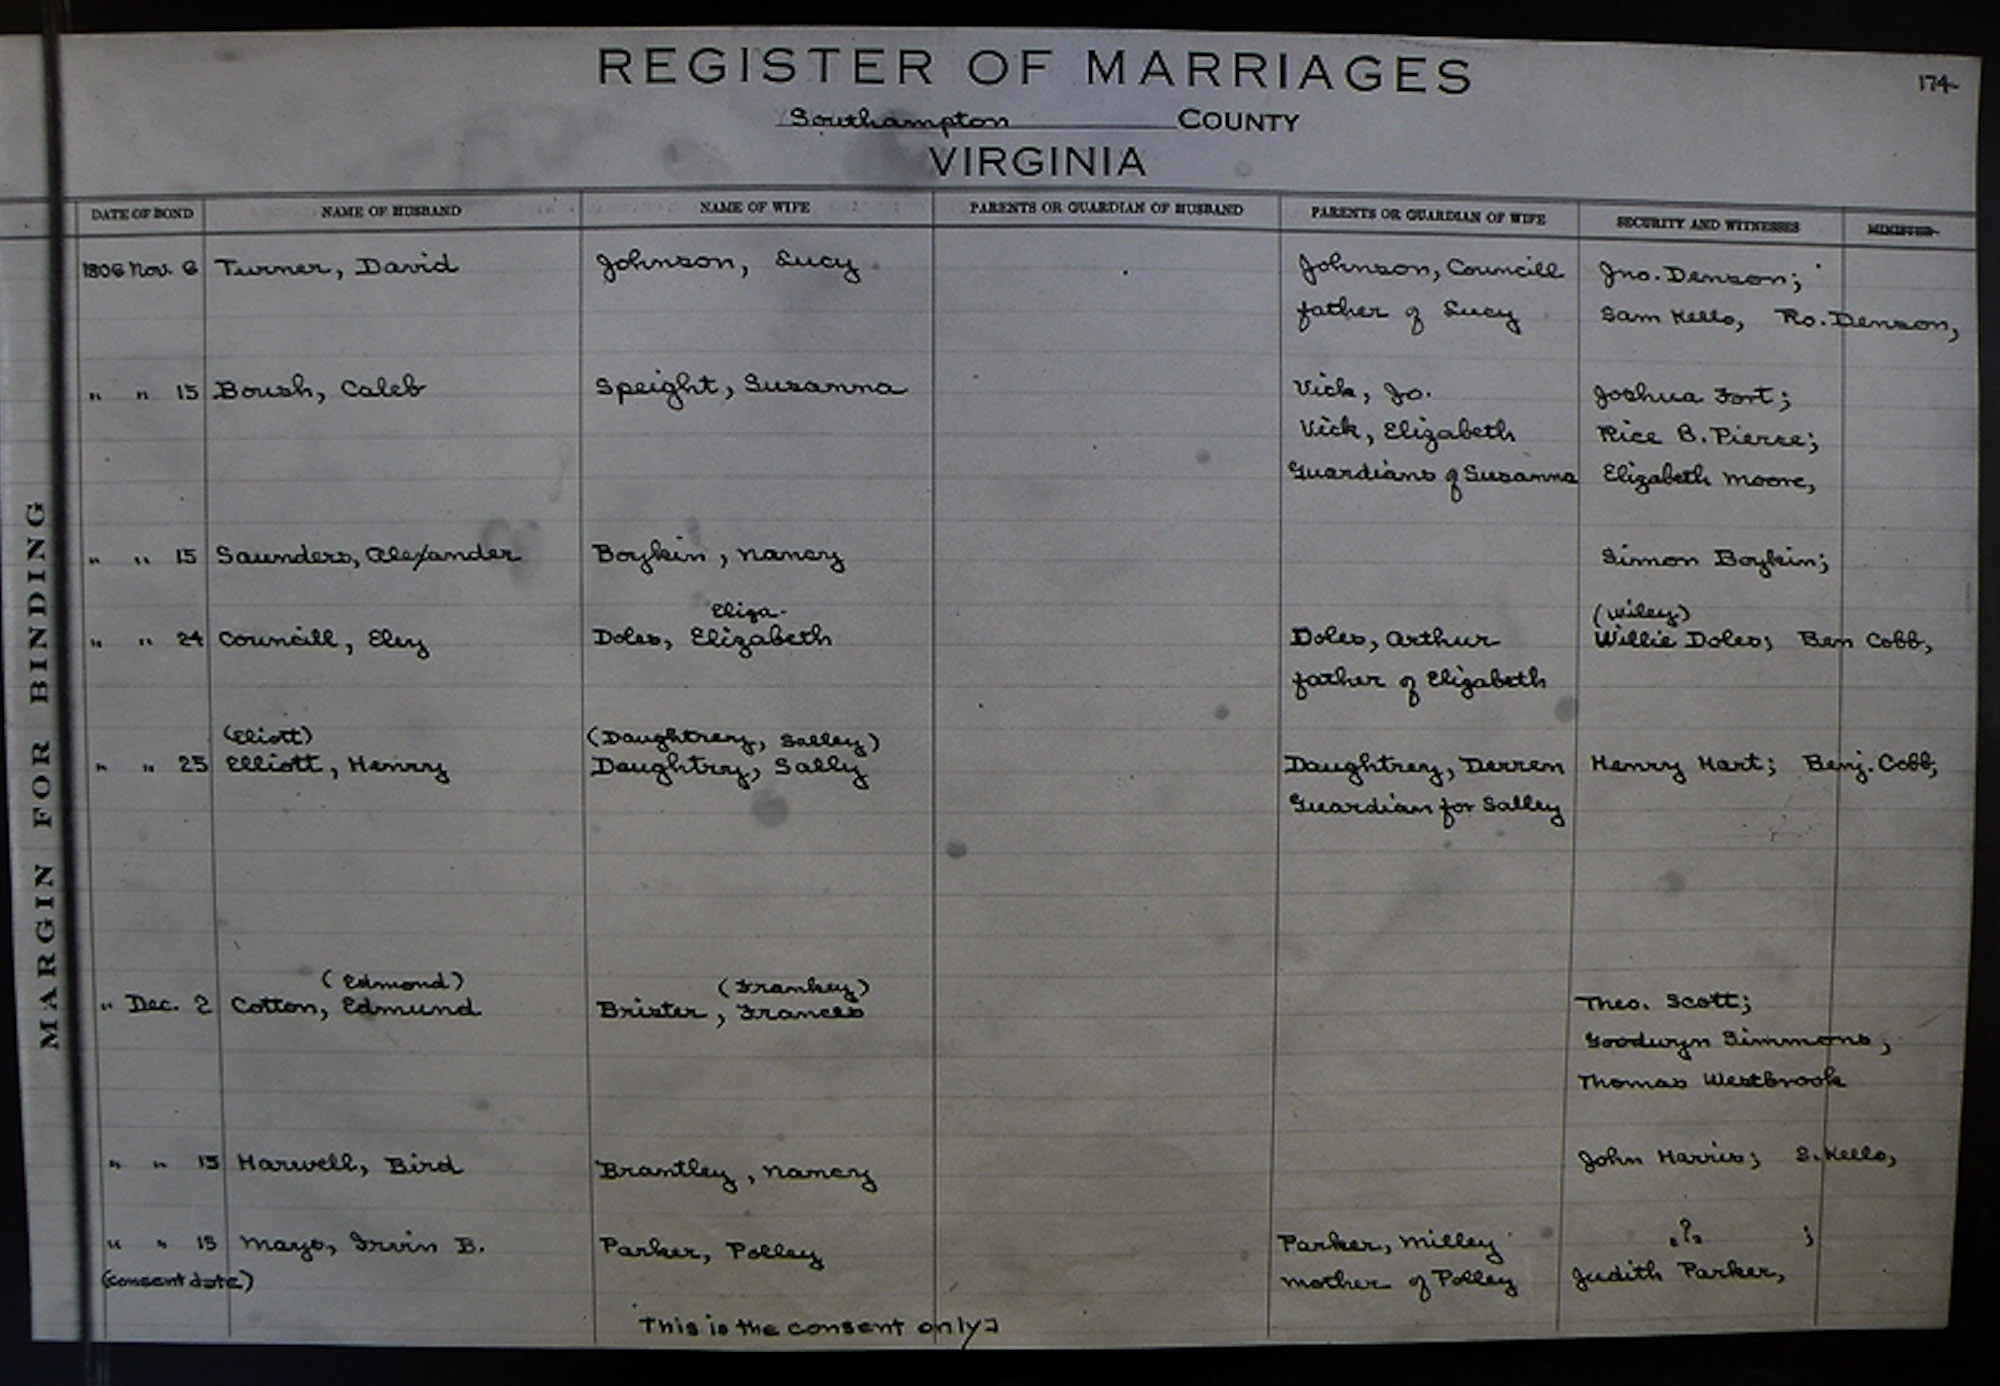 REGISTER OF MARRIAGES
174
Southampton COUNTY
VIRGINIA
DATE OF BOND NAME OF HUSBAND NAME OF WIFE PARENTS OR GUARDIAN OF HUSBAND PARENTS OR GUARDIAN OF WIFE SECURITY AND WITNESSES MINISTER
1806 Nov. 6 Turner, David Johnson, Lucy Johnson, Councill Jno. Denson;
father of Lucy Sam Kello, Ro. Denson,
" " 15 Boush, Caleb Speight, Susanna Vick, Jo. Joshua Fort;
Vick, Elizabeth Rice B. Pierce;
Guardians of Susanna Elizabeth Moore,
" " 15 Saunders, Alexander Boykin, Nancy Simon Boykin;
Eliza- (Wiley)
" " 24 Councill, Eley Doles, Elizabeth Doles, Arthur Willie Doles; Ben Cobb,
father of Elizabeth
(Eliott) (Daughtrey, Salley)
" " 25 Elliott, Henry Daughtry, Sally Daughtrey, Derren Henry Hart; Benj. Cobb,
Guardian for Salley
(Edmond) (Frankey)
" Dec. 2 Cotton, Edmund Brister, Frances Theo. Scott;
Goodwyn Simmons,
Thomas Westbrook
" " 15 Harwell, Bird Brantley, Nancy John Harris; S. Kello,
" " 15 Mayo, Irvin B. Parker, Polley Parker, Milley ? ;
(consent date) mother of Polley Judith Parker,
This is the consent only
MARGIN FOR BINDING